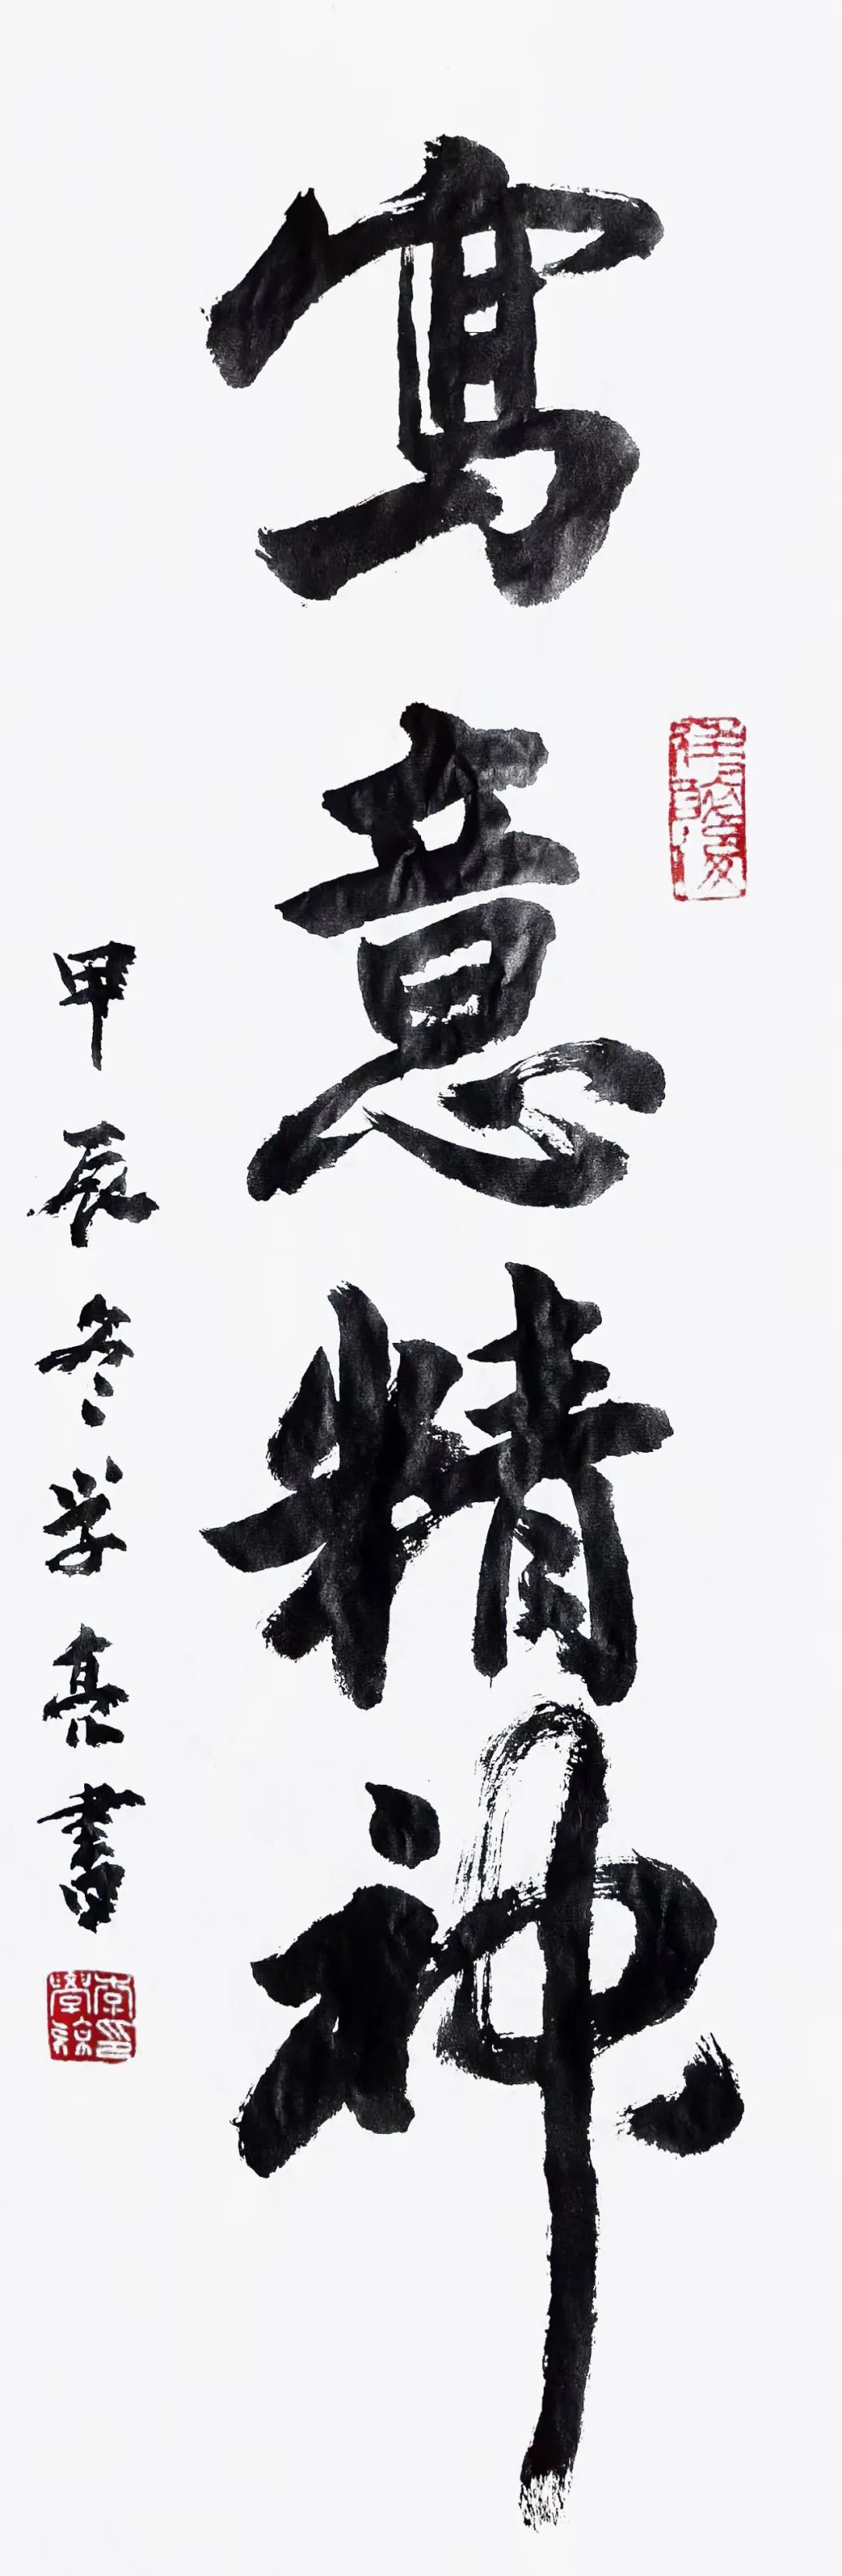 寫意精神
甲辰冬学亮書